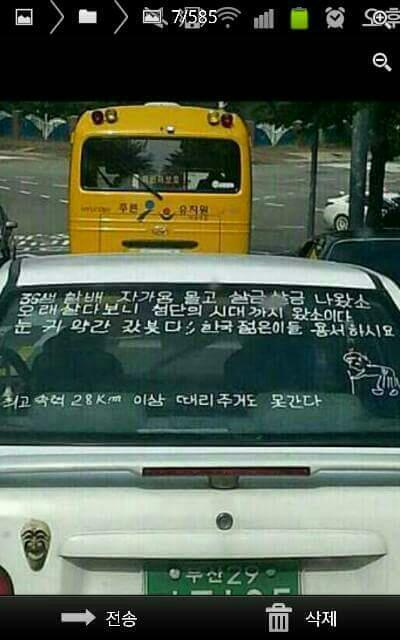 7/585
푸른 유치원
36생 할배 자가용 몰고 살금살금 나왔소
오래살다보니 첨단의 시대까지 왔소이다
눈 귀 약간 갔붓다;; 한국 젊은이들 용서하시요
최고속력 28Km 이상 때리주거도 못간다
부산 29
전송
삭제